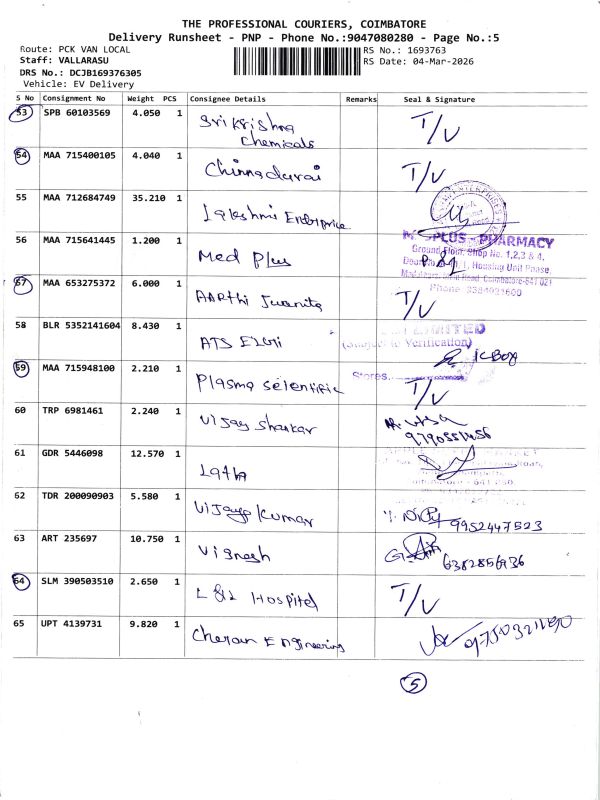 THE PROFESSIONAL COURIERS, COIMBATORE
Delivery Runsheet - PNP - Phone No.:9047080280 - Page No.:5
Route: PCK VAN LOCAL
RS No.: 1693763
Staff: VALLARASU
RS Date: 04-Mar-2026
DRS No.: DCJB169376305
Vehicle: EV Delivery
S No Consignment No Weight PCS Consignee Details Remarks Seal & Signature
53 SPB 60103569 4.050 1 Sri Krishna Chemicals T/V
54 MAA 715400105 4.040 1 Chinnadurai T/V
55 MAA 712684749 35.210 1 Lakshmi Enterprice
56 MAA 715641445 1.200 1 Med plus
MEDPLUS - PHARMACY
Ground Floor, Shop No. 1,2,3 & 4,
Housing Unit Phase,
57 MAA 653275372 6.000 1 AARthi Juanita T/V
58 BLR 5352141604 8.430 1 ATS ELGi
LIMITED
(Subject to Verification)
Stores
59 MAA 715948100 2.210 1 Plasma scientific T/V
60 TRP 6981461 2.240 1 Vijay Shankar
9790551456
61 GDR 5446098 12.570 1 Latha
62 TDR 200090903 5.580 1 Vijaya Kumar
9952447523
63 ART 235697 10.750 1 Vignesh
6382856936
64 SLM 390503510 2.650 1 L&L Hospital T/V
65 UPT 4139731 9.820 1 Cheran Engineering
5